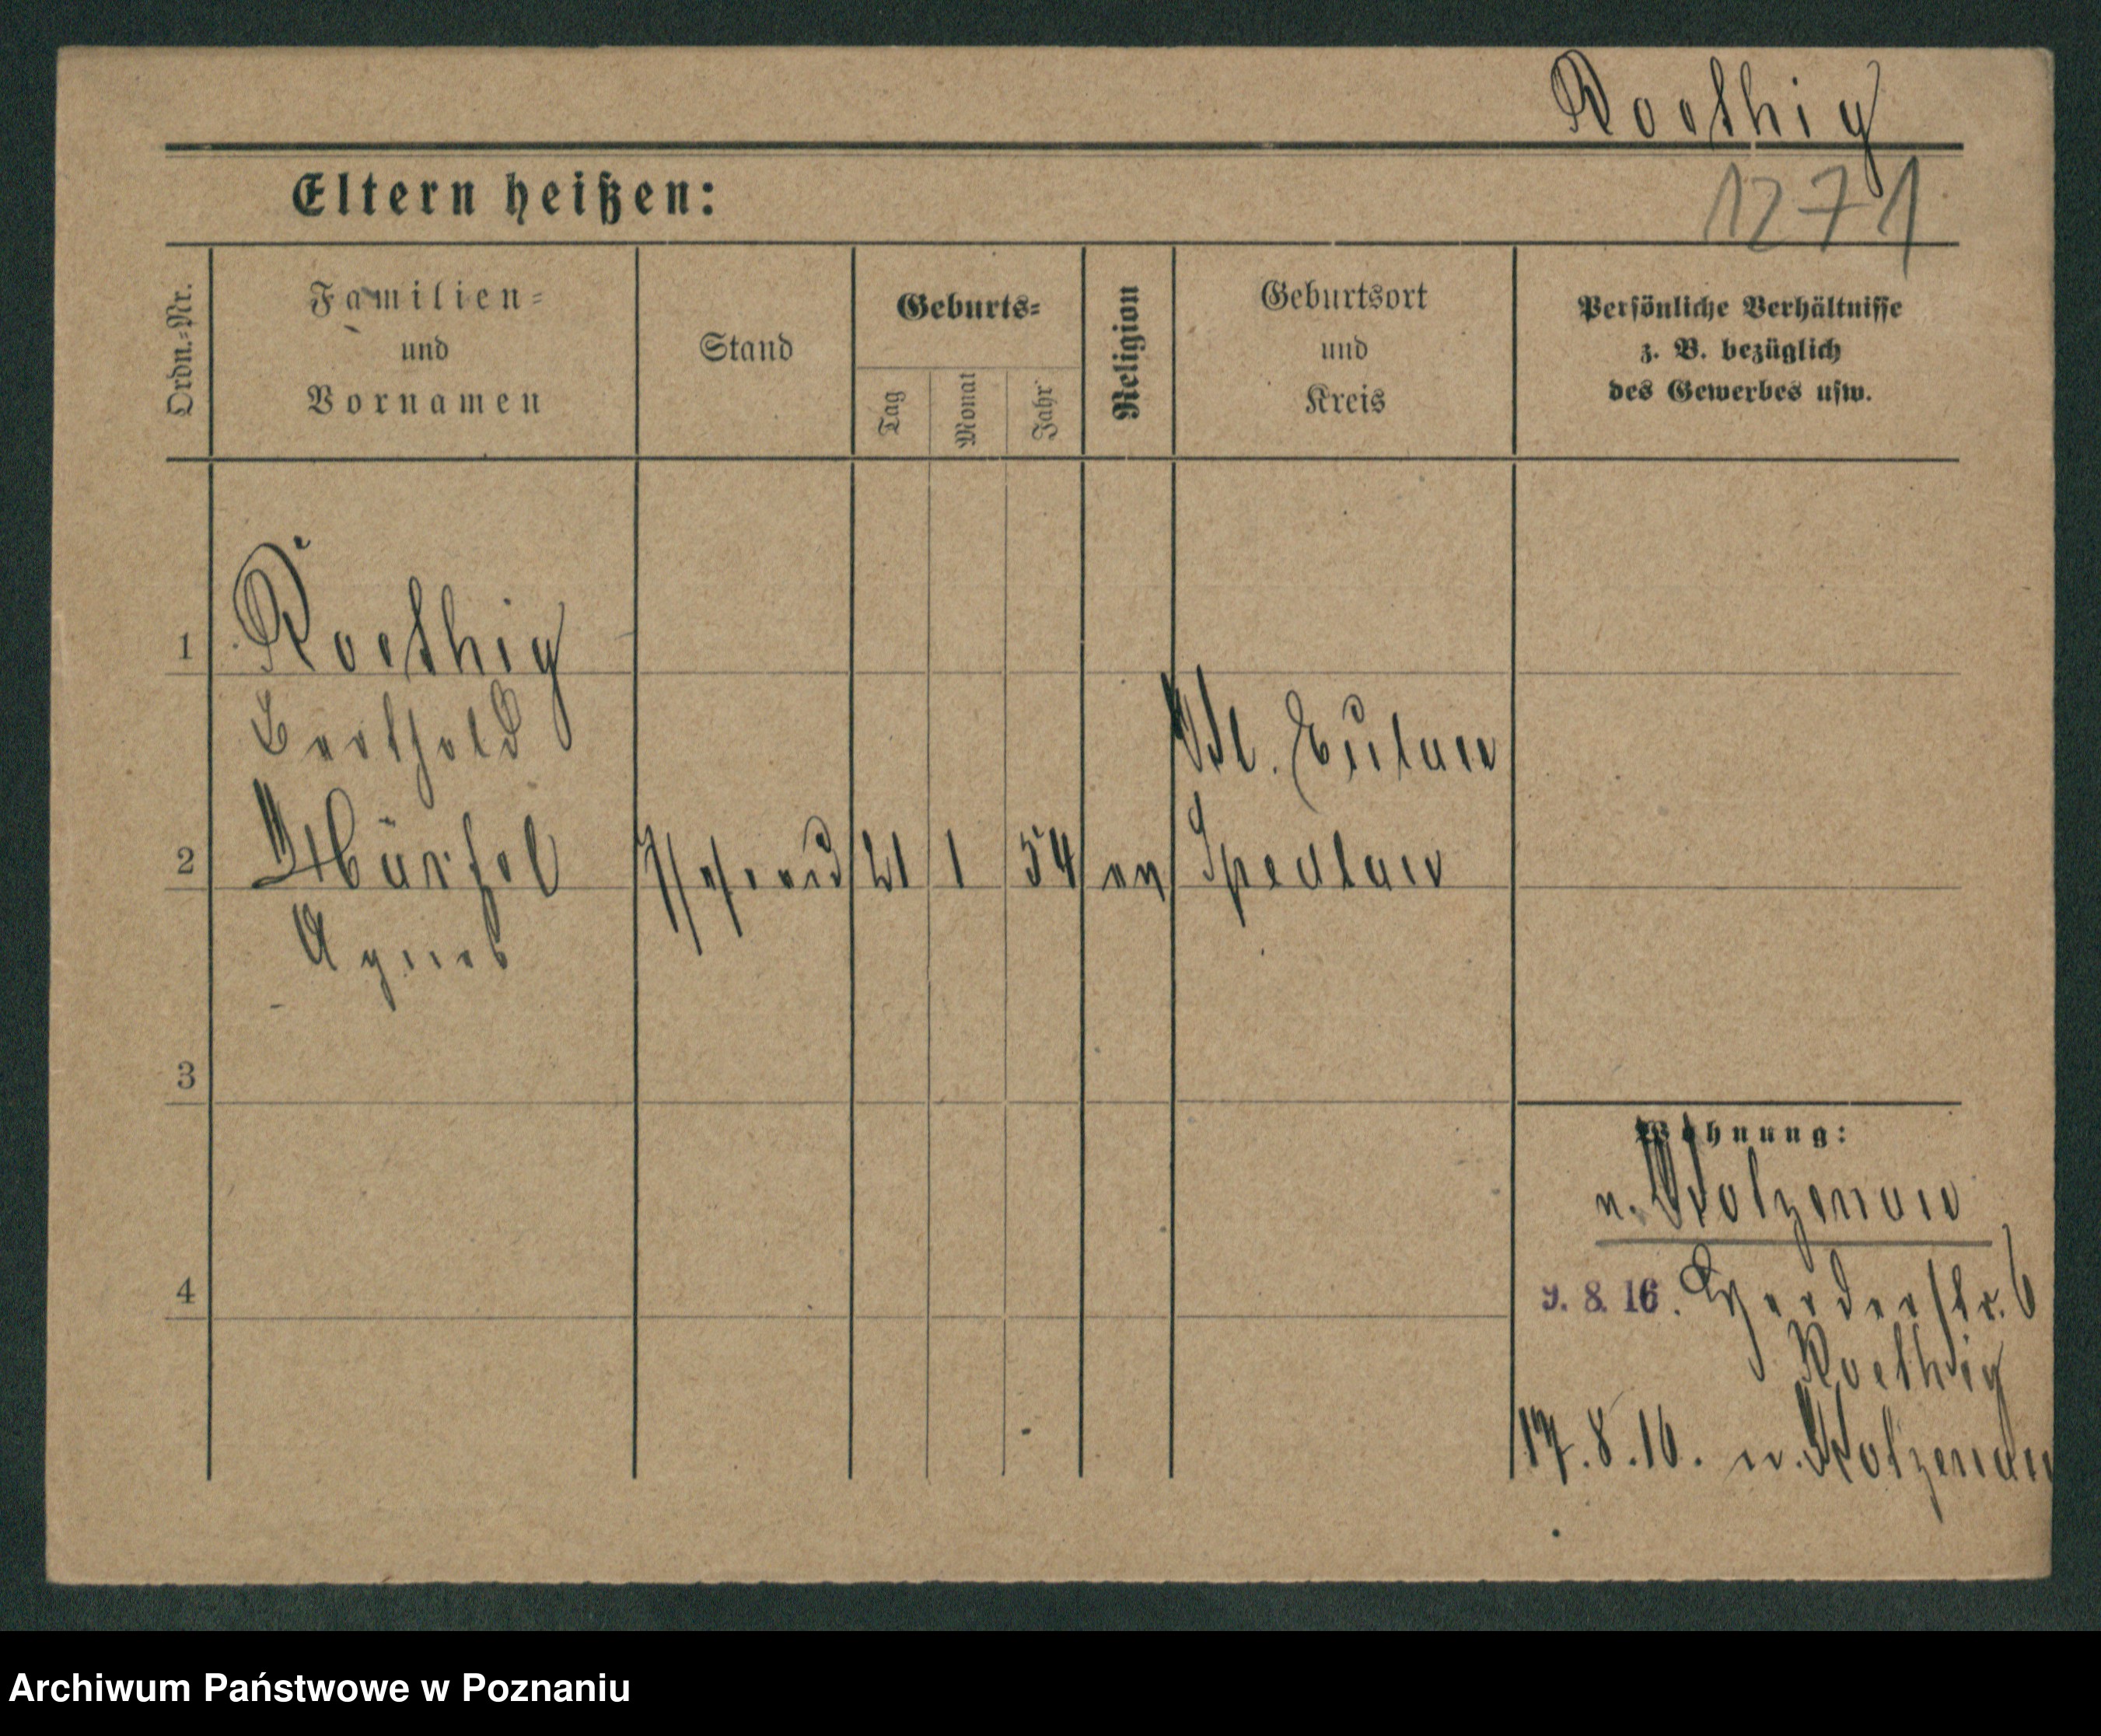 Roethig
Eltern heißen:
1271
Ordn.-Nr.
Familien-
und
Vornamen
Stand
Geburts-
Tag
Monat
Jahr
Religion
Geburtsort
und
Kreis
Persönliche Verhältnisse
z. B. bezüglich
des Gewerbes usw.
1 Roethig
Berthold
2 21 1 54 ev
Agnes
3
Wohnung:
n. Wolzenau
4 9. 8. 16. Herderstr. 6
Roethig
17. 8. 16. n. Wolzenau
Archiwum Państwowe w Poznaniu